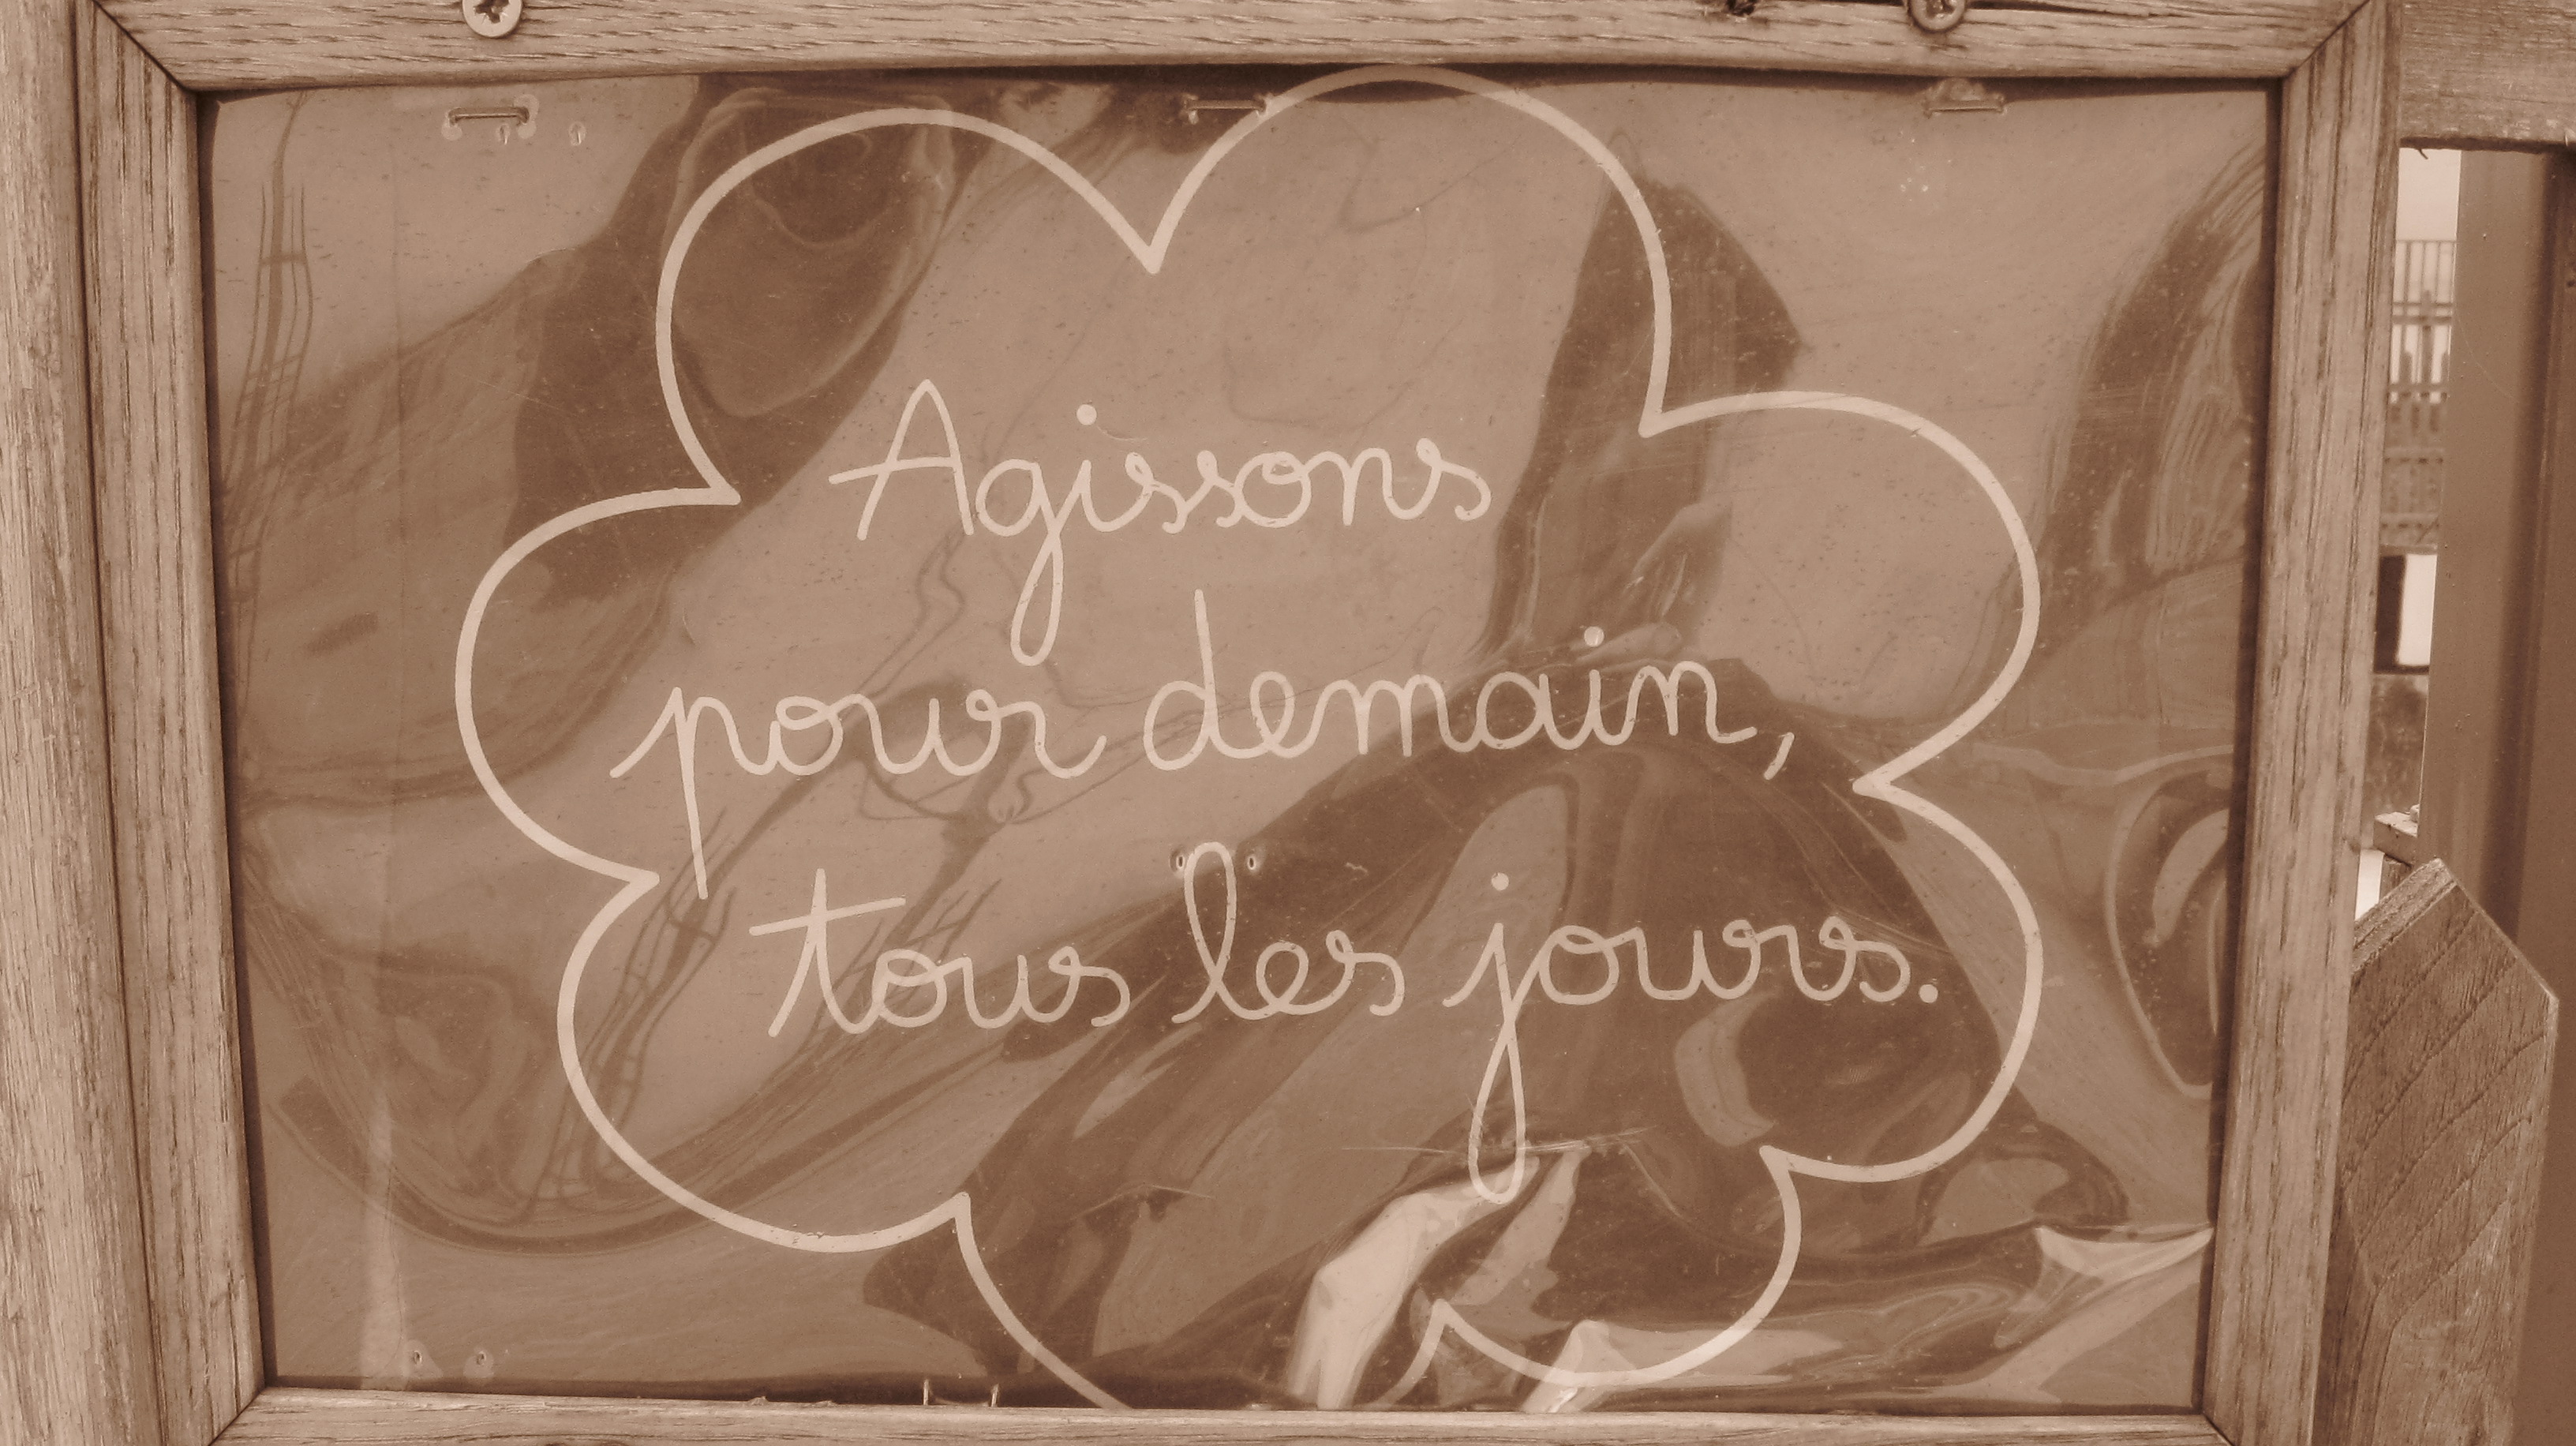 Agissons
pour demain,
tous les jours.